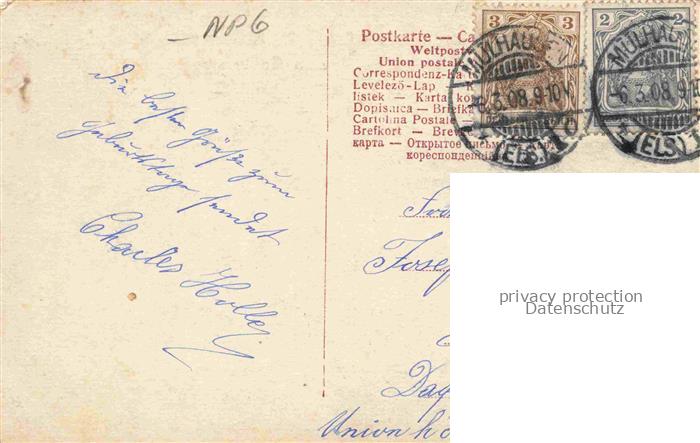 NP6
Die besten Grüße zum
Geburtstage sendet
Charles Holley
Postkarte — Ca
Weltpost
Union postale
Correspondenz-Ka
Levelező-Lap — K
listek — Karta ko
Dopisnica — Briefka
Cartolina Postale
Brefkort — Brev
карта — Открытое письмо — Кор
кореспонденц
3 3
2 2
MÜLHAUSEN
-6.3.08.9-10V.
(ELS.) 1 c
MÜLHAU
-6.3.08.9-10
(ELS.) 1
Frä
Josep
Da
Unionh
privacy protection
Datenschutz